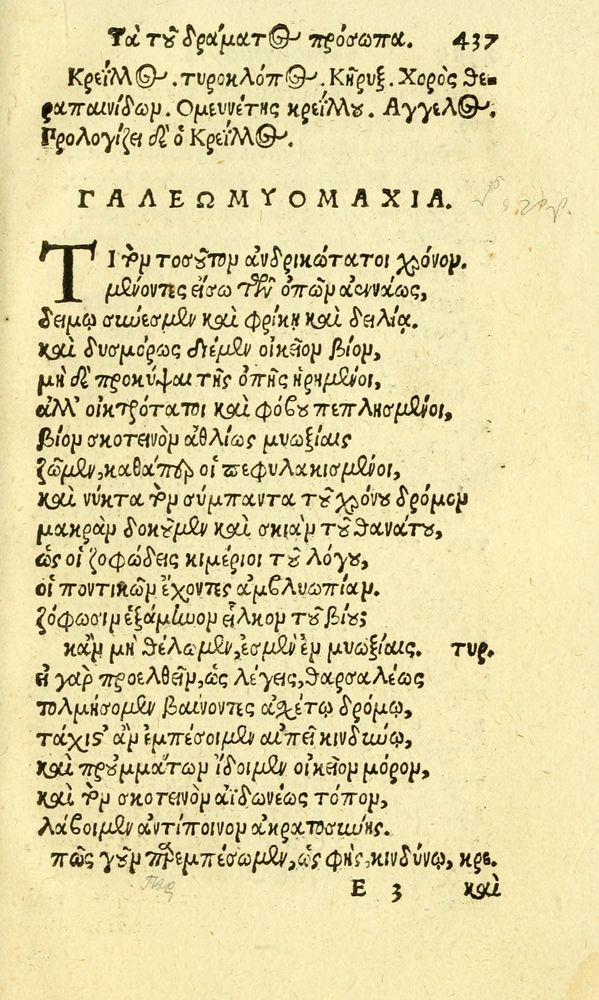 Τὰ τοῦ δράματος πρόσωπα. 437
Κρείλλος. τυροκλόπος. Κήρυξ. Χορὸς θε-
ραπαινίδων. Ομευνέτης κρείλλου. Αγγελος.
Προλογίζει δὲ ὁ Κρείλλος.
ΓΑΛΕΩΜΥΟΜΑΧΙΑ.
ΤΙ τὸν τοσοῦτον ἀνδρικώτατοι χρόνον.
μένοντες εἴσω τῶν ὀπῶν ἀεννάως,
δειμῷ σιώεσμεν καὶ φρίκῃ καὶ δειλίᾳ.
καὶ δυσμόρως διέμεν οἰκεῖον βίον,
μὴ δὲ προκύψαι τῆς ὀπῆς ᾑρημένοι,
ἀλλ' οἰκτρότατοι καὶ φόβου πεπλησμένοι,
βίον σκοτεινὸν ἀθλίως μυωξίαις
ζῶμεν, καθάπερ οἱ πεφυλακισμένοι,
καὶ νύκτα τὸν σύμπαντα τοῦ χρόνου δρόμον
μακρὰν δοκοῦμεν καὶ σκιὰν τοῦ θανάτου,
ὡς οἱ ζοφώδεις κιμέριοι τοῦ λόγου,
οἱ ποντικῶν ἔχοντες ἀμβλυωπίαν.
ζόφωσιν ἑξάμηνον εἷλκον τοῦ βίου;
κἂν μὴ θέλωμεν, ἐσμὲν ἐν μυωξίαις. τυρ.
εἰ γὰρ προελθεῖν, ὡς λέγεις, θαρσαλέως
τολμήσομεν βαίνοντες ἀχέτῳ δρόμῳ,
τάχιστ' ἂν ἐμπέσοιμεν αἰπεῖ κινδύνῳ,
καὶ πρὸ ὀμμάτων ἴδοιμεν οἰκεῖον μόρον,
καὶ τὸν σκοτεινὸν ἀϊδωνέως τόπον,
λάβοιμεν ἀντίποινον ἀκρατοσιώης.
πῶς γοῦν παρεμπέσωμεν, ὡς φῂς, κινδύνῳ, κρε.
E 3 καὶ